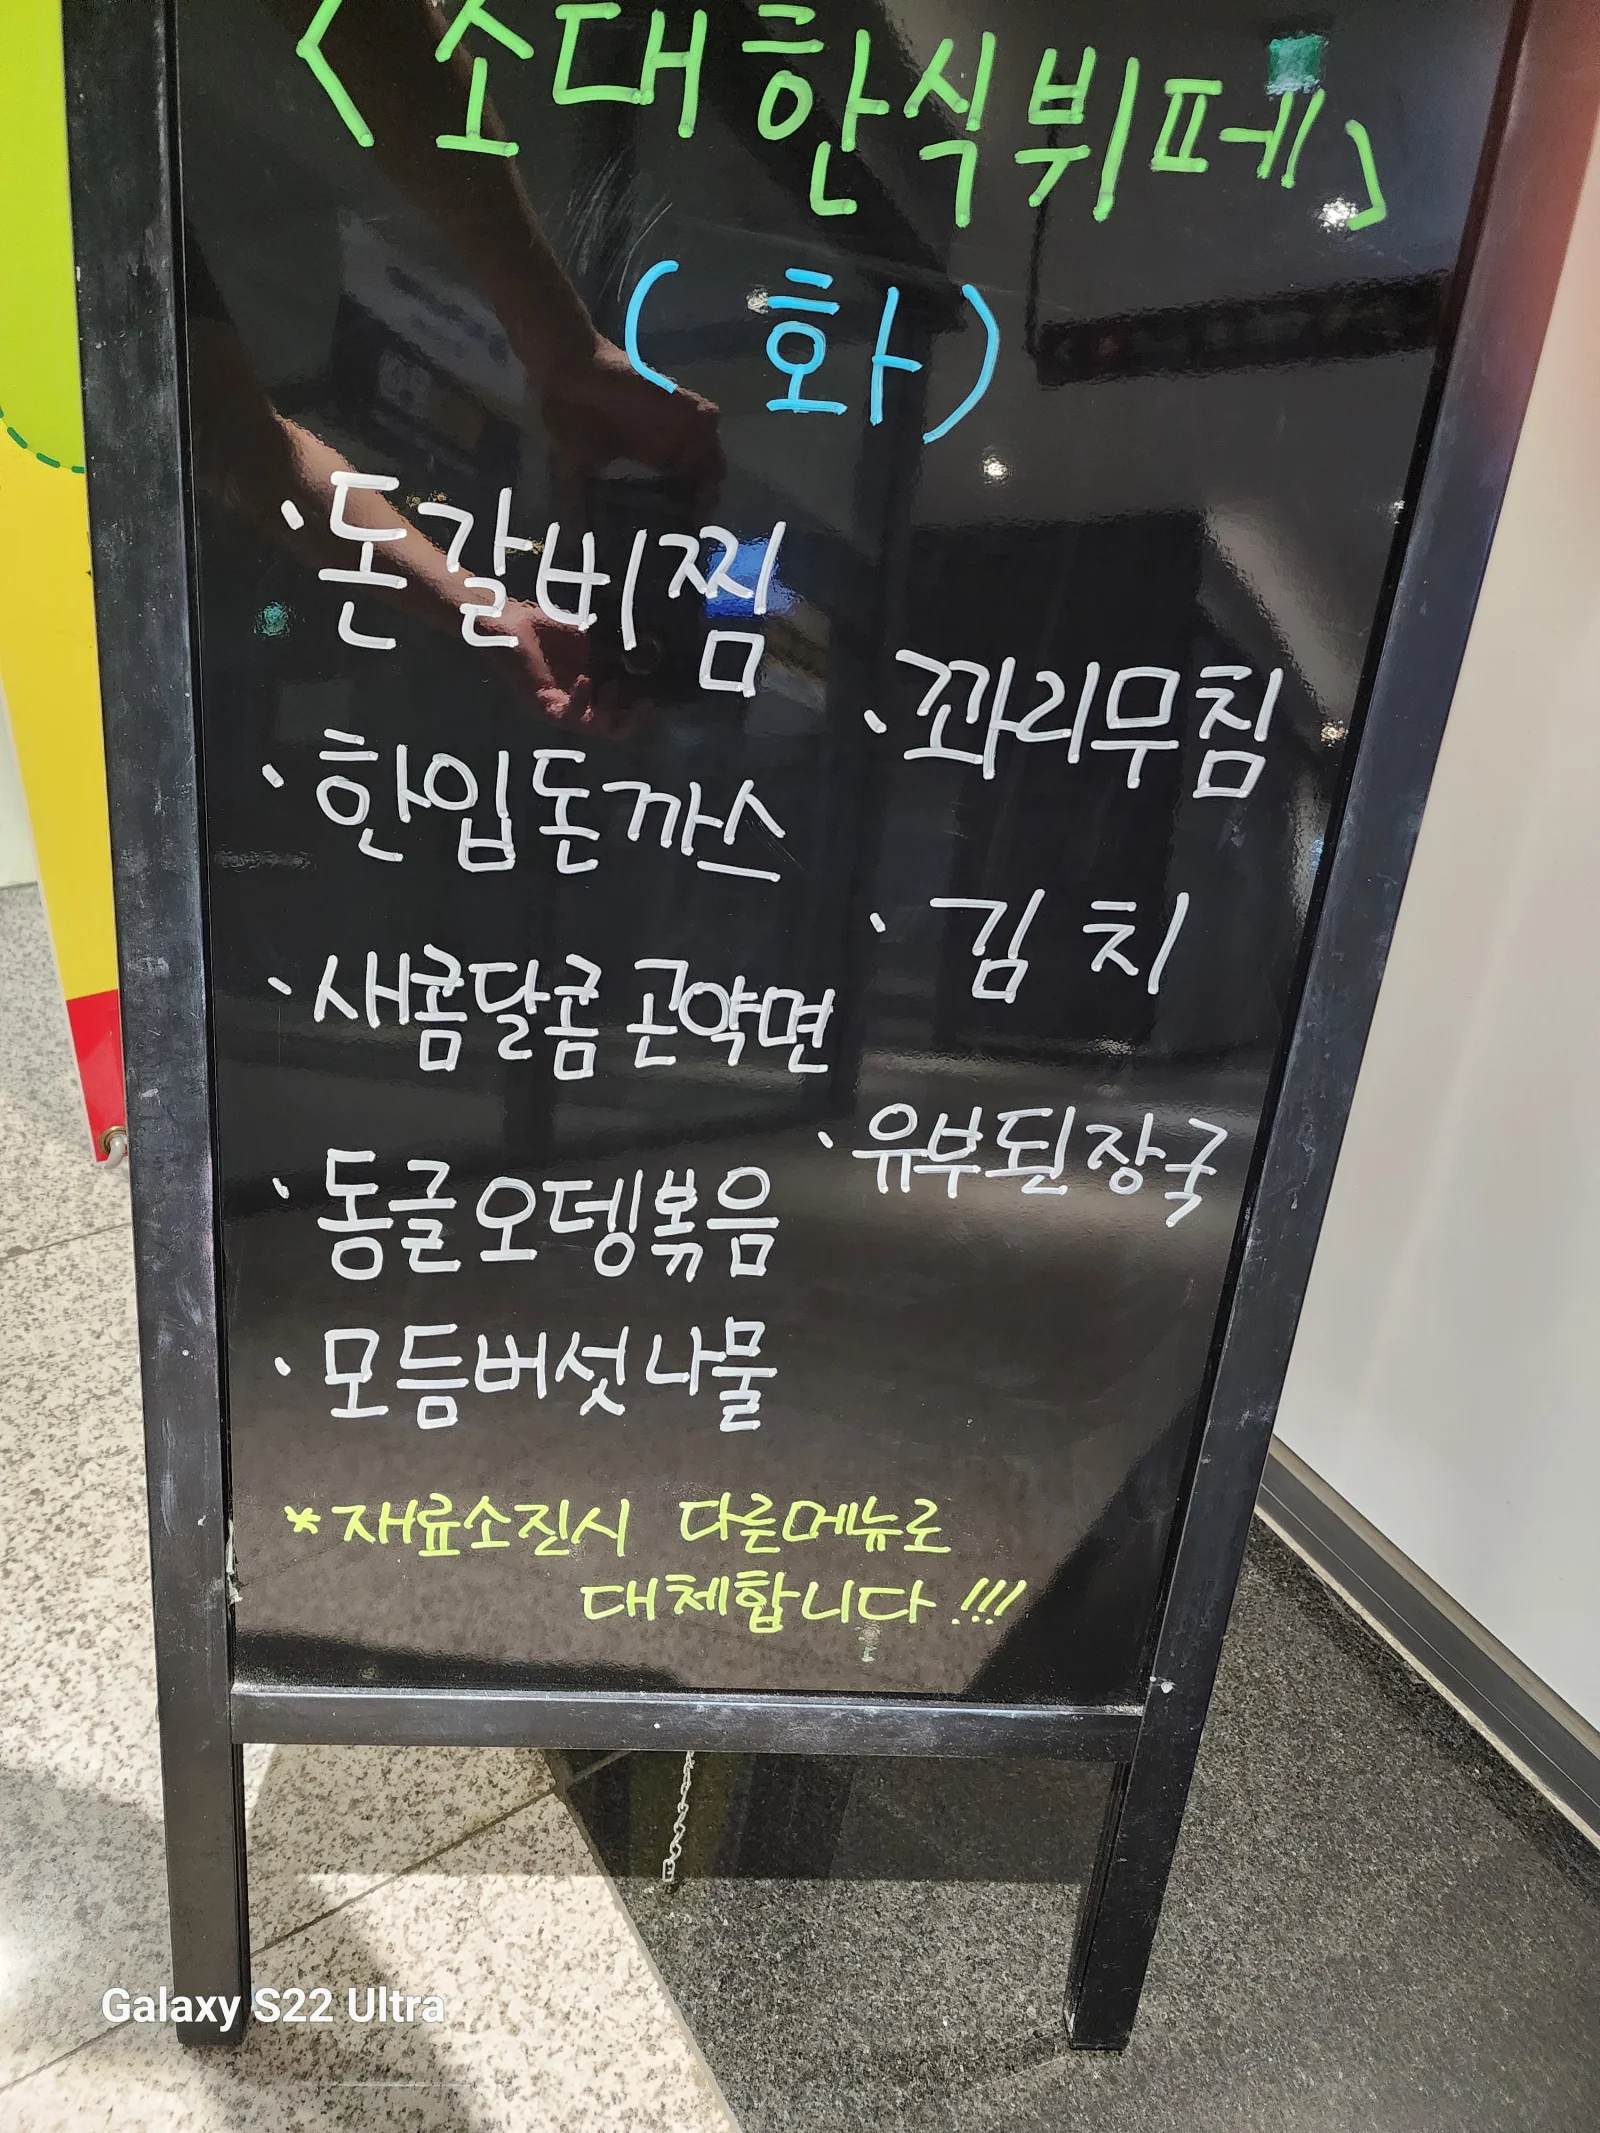 <소대한식뷔페>
(화)
· 돈갈비찜
· 한입돈까스
· 새콤달콤 곤약면
· 동글오뎅볶음
· 모듬버섯나물
· 꽈리무침
· 김치
· 유부된장국
*재료소진시 다른메뉴로
대체합니다!!!
Galaxy S22 Ultra